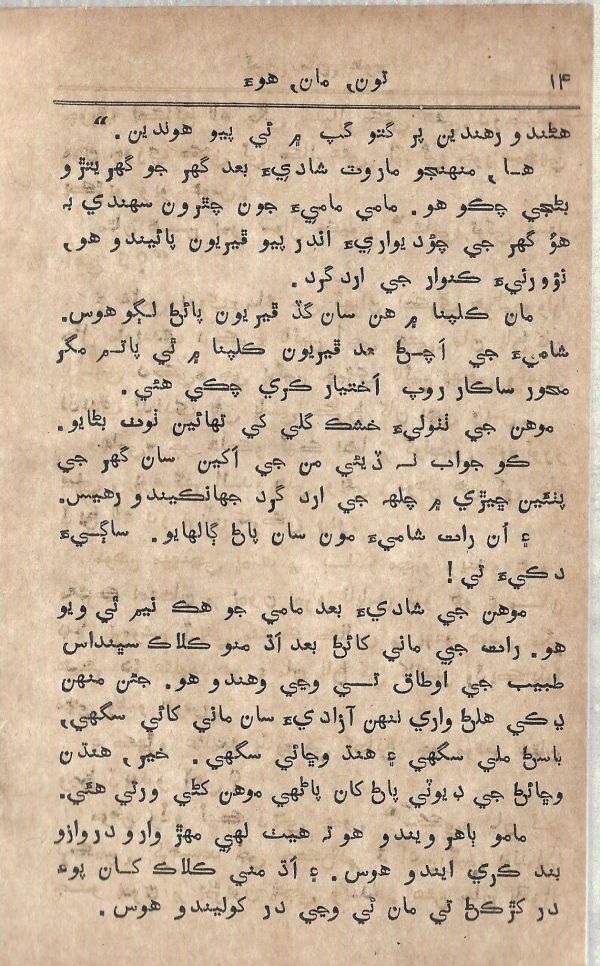 ۱۴ تون، مان، هوءَ
هڻندو رهندين پر گتو گپ ۾ ئي پيو هوندين.“
ها، منهنجو ماروٽ شاديءَ بعد گهر جو گهريتڙو
بڻجي چڪو هو. مامي ماميءَ جون چٿرون سهندي به
هؤ گهر جي چؤديواريءَ اندر پيو ڦيريون پائيندو هو،
نؤورنيءَ ڪنوار جي اردگرد.
مان ڪلپنا ۾ هن سان گڏ ڦيريون پائڻ لڳو هوس.
شاميءَ جي اَچڻ بعد ڦيريون ڪلپنا ۾ ئي پاتم مگر
محور ساڪار روپ اختيار ڪري چڪي هئي.
موهن جي ٺٺوليءَ خشڪ گلي کي تهائين ٺوٺ بڻايو.
ڪو جواب نہ ڏيئي من جي اَکين سان گهر جي
پٺئين ڇيڙي ۾ چلهہ جي اردگرد جهانڪيندو رهيس.
۽ اُن رات شاميءَ مون سان پاڻ ڳالهايو. ساڳيءَ
دڪيءَ تي!
موهن جي شاديءَ بعد مامي جو هڪ نيم ٿي ويو
هو. رات جي ماني کائڻ بعد اَڌ منو ڪلاڪ سڀنداس
طبيب جي اوطاق تي وڃي وهندو هو. جئن منهن
ڍڪي هلڻ واري ننهن آزاديءَ سان ماني کائي سگهي،
باسڻ ملي سگهي ۽ هنڌ وڇائي سگهي. خير، هنڌن
وڇائڻ جي ڊيوٽي پاڻ کان پاڻهي موهن کڻي ورتي هئي.
مامو ٻاهر ويندو هو تہ هيٺ لهي مهڙ وارو دروازو
بند ڪري ايندو هوس. ۽ اَڌ مني ڪلاڪ کان پوءِ
در کڙڪڻ تي مان ئي وڃي در کوليندو هوس.